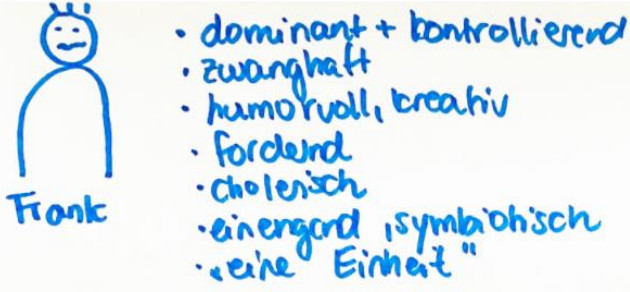 • dominant + kontrollierend
• zwanghaft
• humorvoll, kreativ
• fordernd
• cholerisch
• einengend, symbiotisch
• „eine Einheit"
Frank